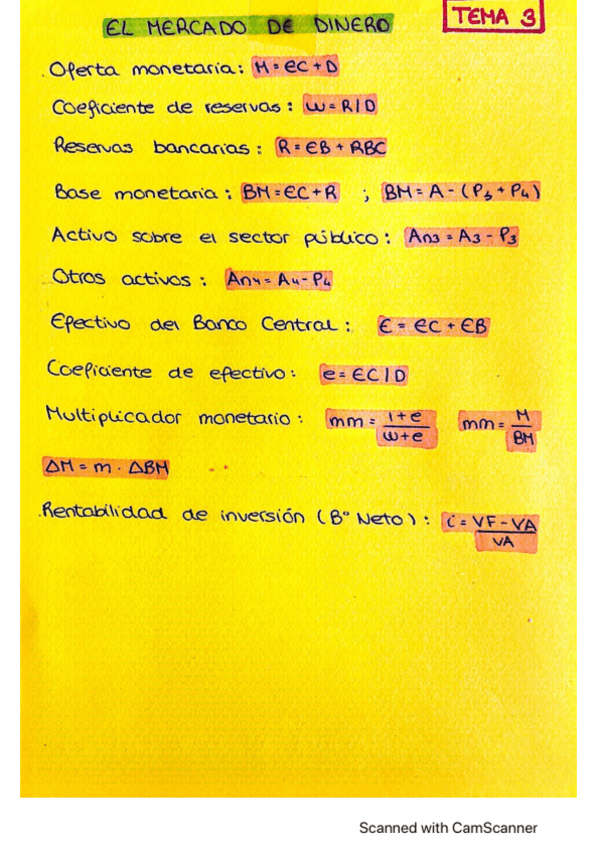 EL MERCADO DE DINERO
TEMA 3
. Oferta monetaria: M = EC + D
Coeficiente de reservas: W = R/D
Reservas bancarias: R = EB + RBC
Base monetaria: BM = EC + R ; BM = A - (P3 + P4)
Activo sobre el sector público: An3 = A3 - P3
Otros activos: An4 = A4 - P4
Efectivo del Banco Central: E = EC + EB
Coeficiente de efectivo: e = EC/D
Multiplicador monetario: mm = 1+e / w+e mm = M / BM
ΔM = m · ΔBM
. Rentabilidad de inversión (Bº Neto): i = VF - VA / VA
Scanned with CamScanner